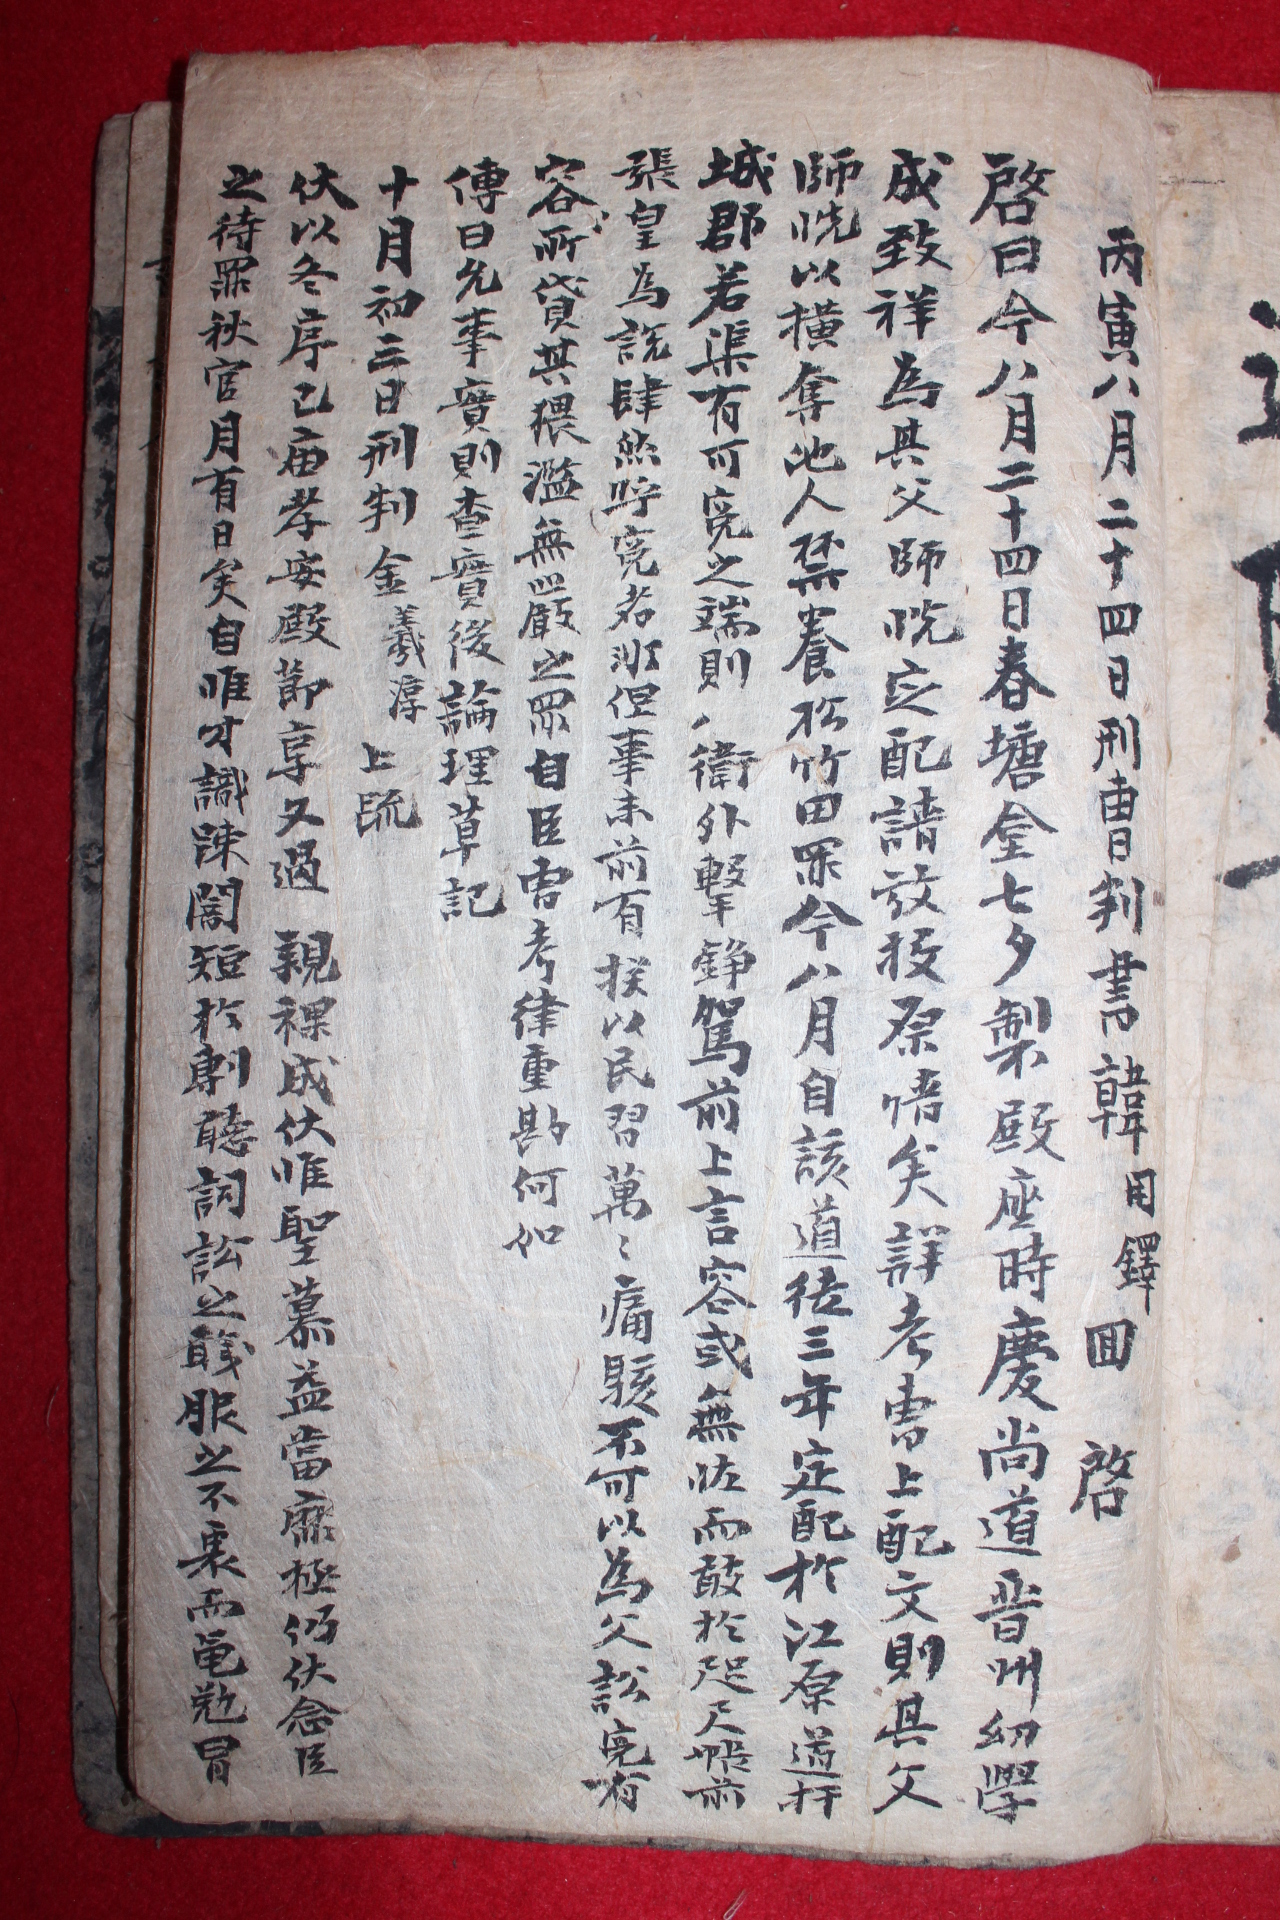 丙寅八月二十四日刑曹判書韓用鐸回 啓
啓曰今八月二十四日春塘坮七夕製殿座時慶尚道晋州幼學
成致祥為其父師晄定配請放援原情矣詳考曺上配文則其父
師晄以橫奪他人禁養松竹田罪今八月自該道徒三年定配於江原道杆
城郡若渠有可寃之端則八衛外擊錚駕前上言容或無怪而敢於咫尺帳前
張皇為說肆然呼寃者非但事未前有揆以民習萬〻痛駭不可以為父訟寃有
容所貸其猥濫無嚴之罪自臣曺考律重勘何如
傳曰允事實則查實後論理草記
十月初三日刑判金羲淳 上疏
伏以冬序已屆孝安殿節享又過 親祼成伏惟聖慕益當靡極仍伏念臣
之待罪秋官月有日矣自唯才識踈闇短於剸聽詞訟之識服之不衷而黽勉冒